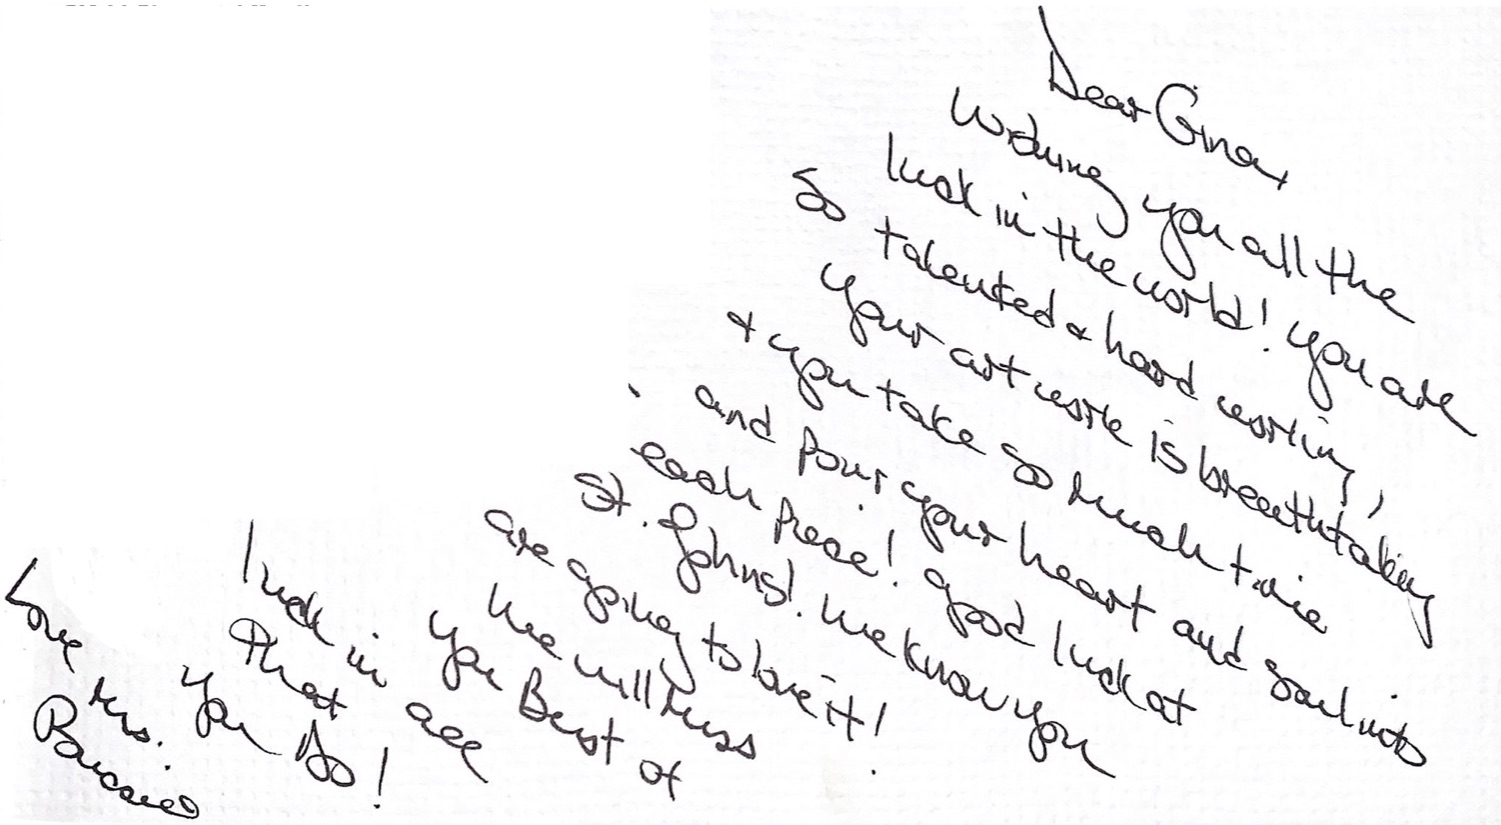 Dear Gina,
Wishing you all the
luck in the world! You are
so talented & hard working,
your art work is breathtaking
& you take so much time
and pour your heart and soul into
each piece! Good luck at
St. Johns! We know you
are going to love it!
We will miss
you Best of
luck in all
that
you do!
Love
Mrs.